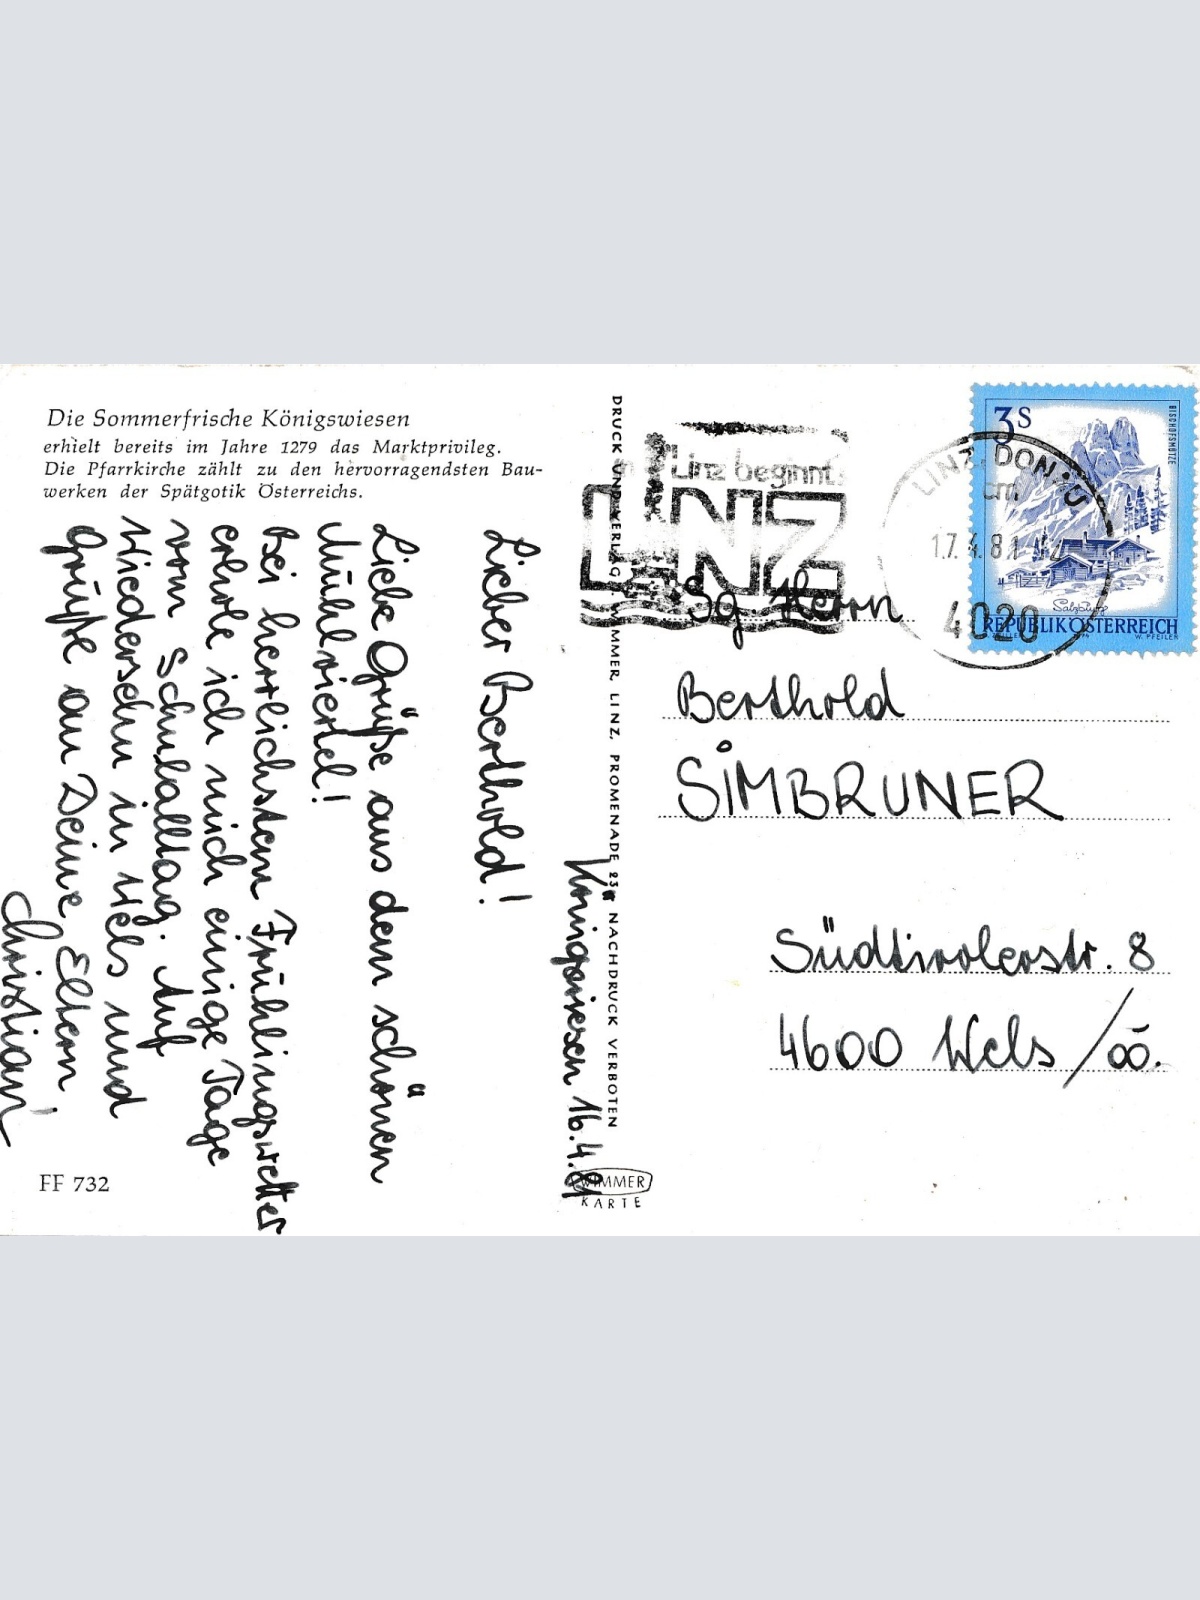 Die Sommerfrische Königswiesen
erhielt bereits im Jahre 1279 das Marktprivileg.
Die Pfarrkirche zählt zu den hervorragendsten Bau-
werken der Spätgotik Österreichs.
Königswiesen 16.4.81
Lieber Berthold!
Liebe Grüße aus dem schönen
Mühlviertel!
Bei herrlichstem Frühlingswetter
erhole ich mich einige Tage
vom Schulalltag. Auf
Wiedersehn in Wels und
Grüße an Deine Eltern,
Christian
FF 732
DRUCK UND VERLAG WIMMER, LINZ, PROMENADE 23 NACHDRUCK VERBOTEN
WIMMER
KARTE
in Linz beginnt's
LINZ
3 S
BISCHOFSMÜTZE
Salzburg
REPUBLIK ÖSTERREICH
W. PFEILER
LINZ, DONAU
cm
17.4.81
4020
Sg. Herrn
Berthold
SIMBRUNER
Südtirolerstr. 8
4600 Wels /OÖ.